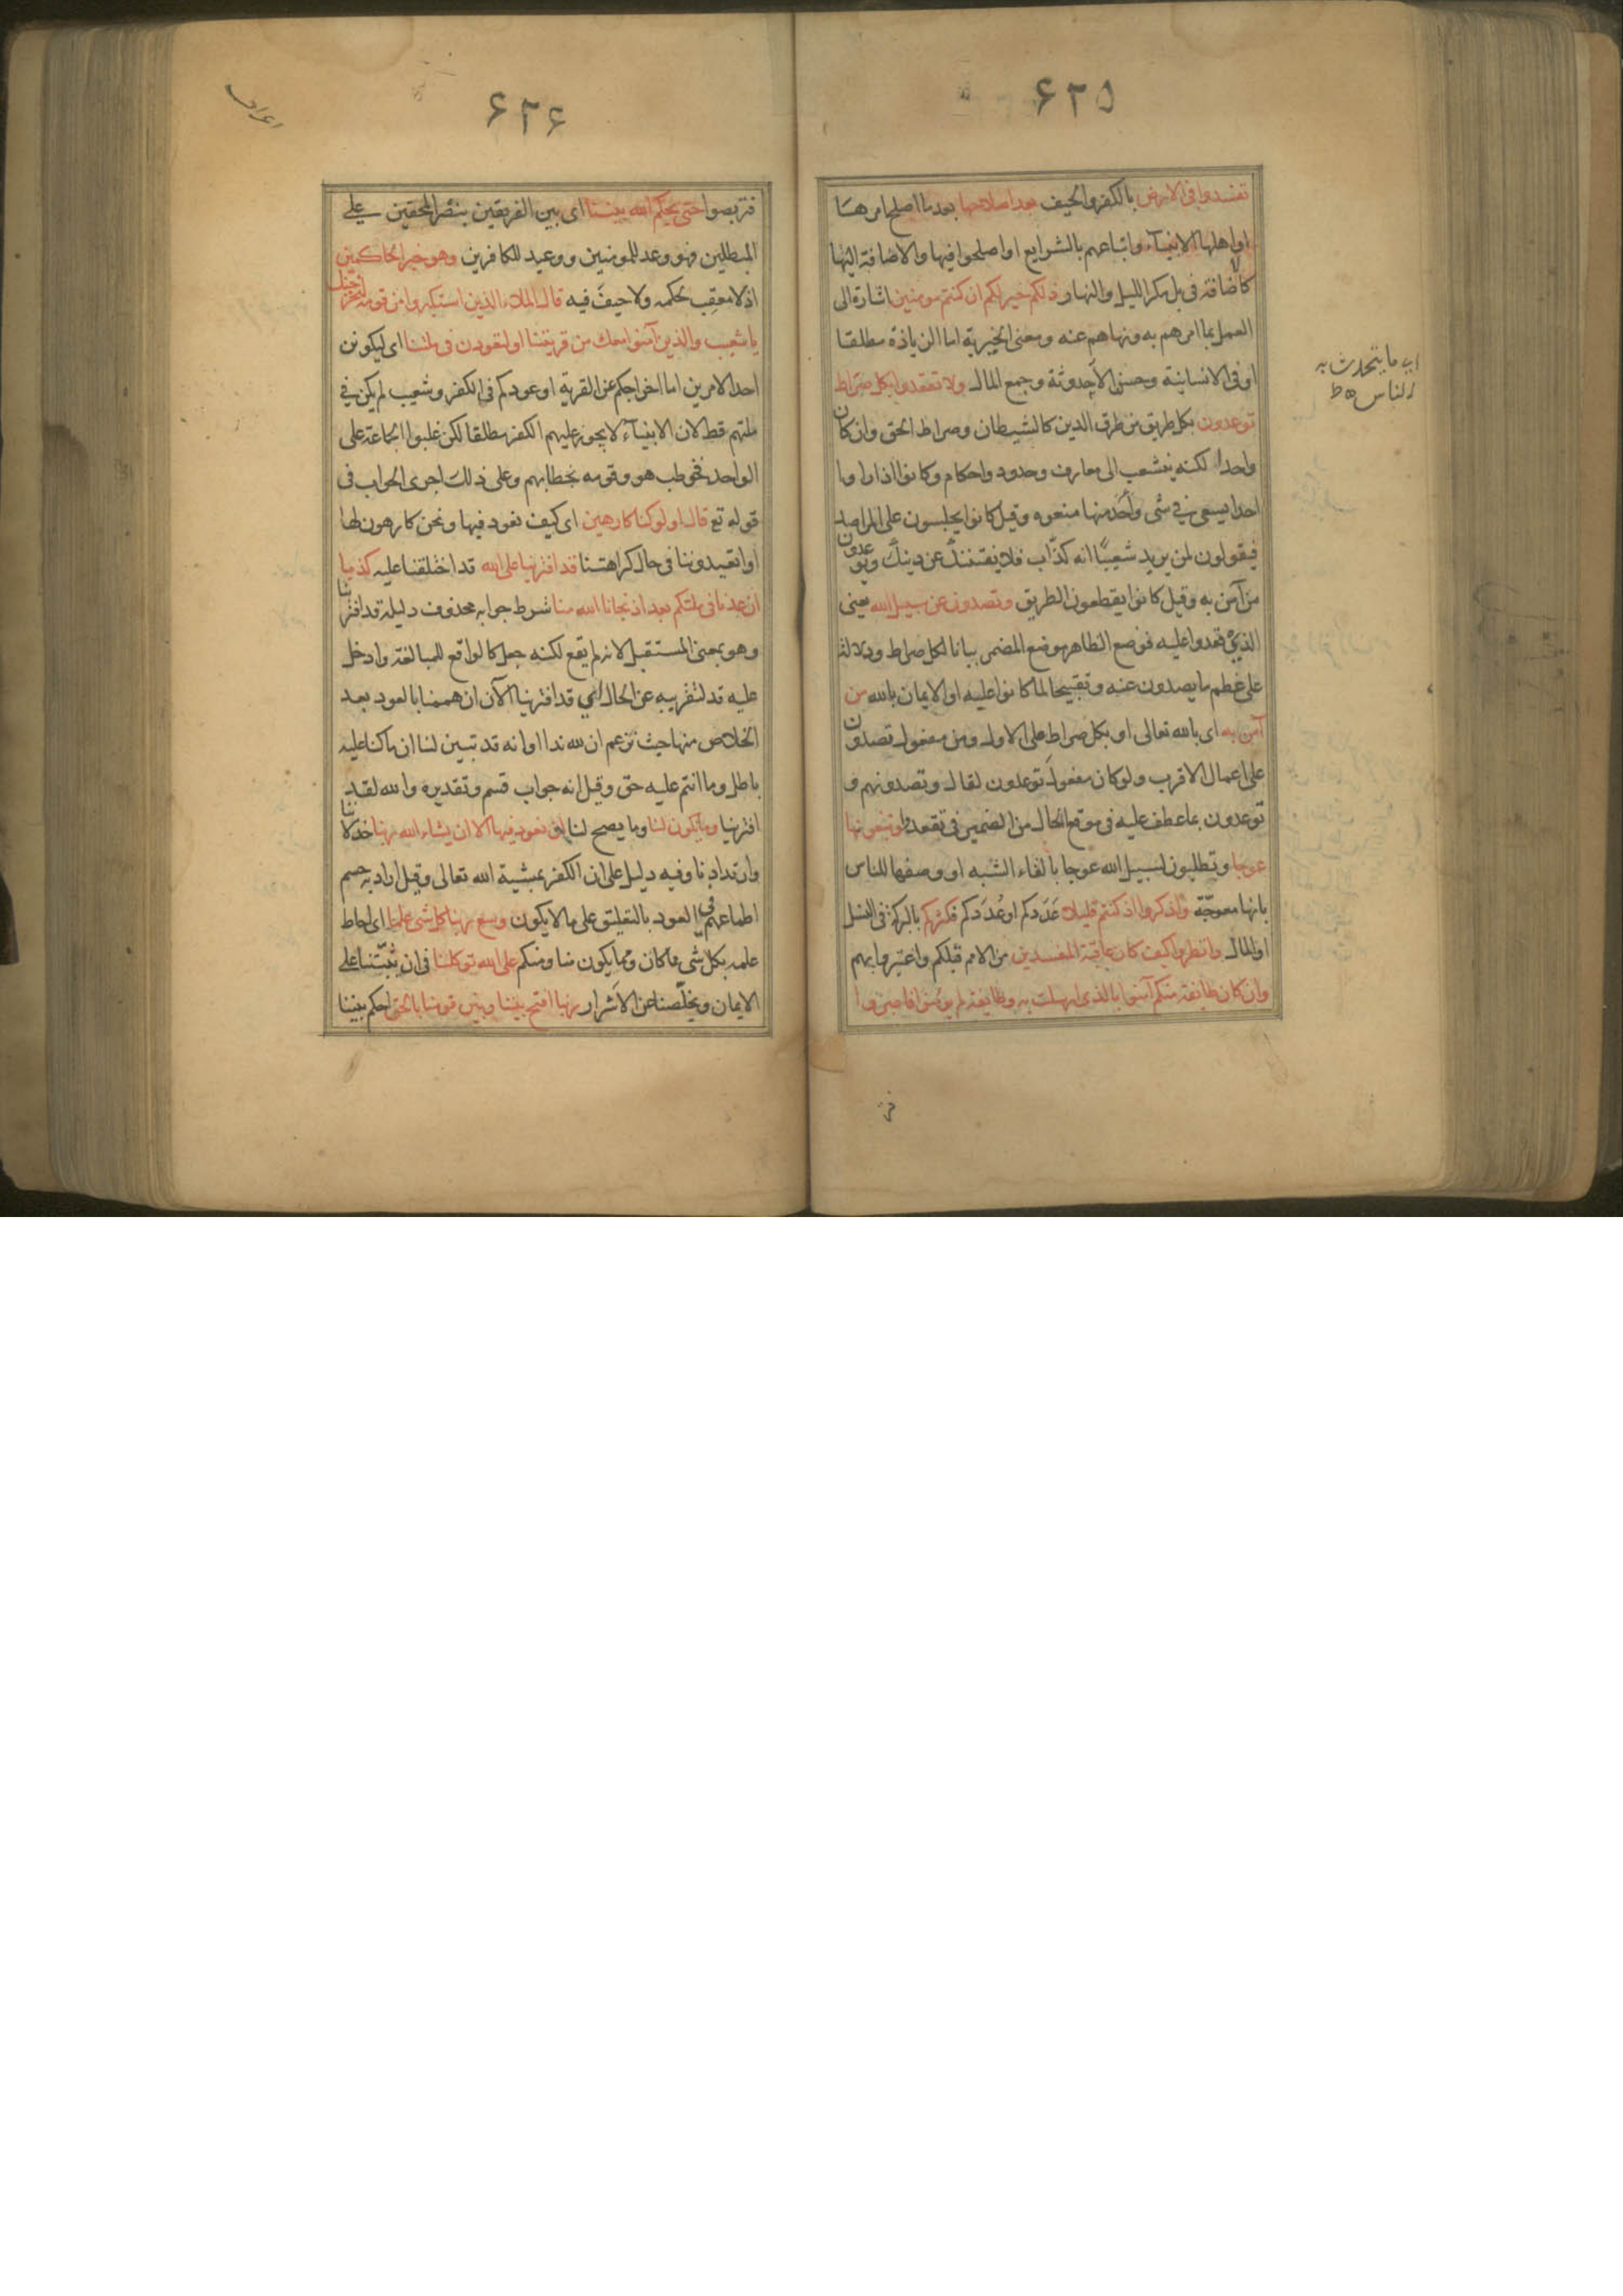 ۶۲۵
تفسدوا في الارض بالكفر والحيف بعد اصلاحها بعد ما اصلح امرها
او اهلها الانبيآء واتباعهم بالشرايع او اصلحوا فيها والاضافة اليها
كاضافة في بل مكر الليل والنهار ذلكم خير لكم ان كنتم مومنين اشارة الى
العمل بما امرهم به ونهاهم عنه ومعنى الخيرية اما الزيادة مطلقا
او في الانسانية وحسن الاحدوثة وجمع المال ولا تقعدوا بكل صراط
توعدون بكل طريق من طرق الدين كالشيطان وصراط الحق وان كان
واحدا لكنه يتشعب الى معارف وحدود واحكام وكانوا اذا راوا
احدا يسعى في شي واحد منها منعوه وقيل كانوا يجلسون على المراصد
فيقولون لمن يريد شعيبًا انه كذّاب فلا يفتننك عن دينك ويوعدون
من آمن به وقيل كانوا يقطعون الطريق وتصدون عن سبيل الله يعنى
الذي قعدوا عليه فوضع الظاهر موضع المضمر بيانا لكل صراط ودلالة
على عظم ما يصدون عنه وتقبيحا لما كانوا عليه او الايمان بالله من
آمن به اى بالله تعالى او بكل صراط على الاول ومن مفعول تصدون
على اعمال الاقرب ولو كان مفعول توعدون لقال وتصدونهم و
توعدون بما عطف عليه في موقع الحال من الضمير في تقعدوا وتبغونها
عوجا وتطلبون لسبيل الله عوجا بالقاء الشبه او وصفها للناس
بانها معوجّة واذكروا اذ كنتم قليلا عَدَدكم او عُدَدكم فكثركم بالبركة في النسل
او المال وانظروا كيف كان عاقبة المفسدين من الامم قبلكم واعتبروا بهم
وان كان طايفة منكم آمنوا بالذي ارسلت به وطايفة لم يومنوا فاصبروا
اي ما يتحدث به
الناس
۶۲۶
اعراف
فتربصوا حتى يحكم الله بيننا اى بين الفريقين بنصر المحقين على
المبطلين فهو وعد للمومنين ووعيد للكافرين وهو خير الحاكمين
اذ لا معقب لحكمه ولا حيف فيه قال الملاء الذين استكبروا من قومه لنخرجنك
يا شعيب والذين آمنوا معك من قريتنا او لتعودن في ملتنا اى ليكونن
احد الامرين اما اخراجكم عن القرية او عودكم في الكفر وشعيب لم يكن في
ملتهم قط لان الانبيآء لا يجوز عليهم الكفر مطلقا لكن غلبوا الجماعة على
الواحد فخوطب هو وقومه بخطابهم وعلى ذلك اجرى الجواب في
قوله تع قال اولو كنا كارهين اى كيف نعود فيها ونحن كارهون لها
او اتعيدوننا في حال كراهتنا قد افترينا على الله قد اختلقنا عليه كذبا
ان عدنا في ملتكم بعد اذ نجانا الله منا شرط جوابه محذوف دليله قد افترينا
وهو بمعنى المستقبل لانه لم يقع لكنه جعل كالواقع للمبالغة وادخل
عليه قد لتقريبه عن الحال اي قد افترينا الآن ان هممنا بالعود بعد
الخلاص منها حيث نزعم ان لله ندا او انه قد تبين لنا ان ما كنا عليه
باطل وما انتم عليه حق وقيل انه جواب قسم وتقديره والله لقد
افترينا وما يكون لنا وما يصح لنا ان نعود فيها الا ان يشاء الله ربنا خذلاننا
وارتدادنا وفيه دليل على ان الكفر بمشية الله تعالى وقيل اراد به حسم
اطماعهم في العود بالتعليق على ما لا يكون وسع ربنا كل شي علما اى احاط
علمه بكل شي ما كان وما يكون منا ومنكم على الله توكلنا في ان يثبّتنا على
الايمان ويخلّصنا عن الاشرار ربنا افتح بيننا وبين قومنا بالحق احكم بيننا